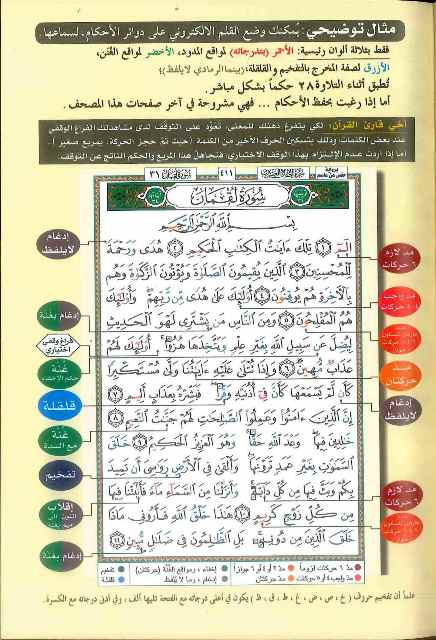 مثال توضيحي: يُمكنك وضع القلم الالكتروني على دوائر الأحكام، لسماعها.
فقط بثلاثة ألوان رئيسية: الأحمر (بتدرجاته) لمواقع المدود، الأخضر لمواقع الغُنن،
الأزرق لصفة المخرج بالتفخيم والقلقلة، (بينما الرمادي لايلفظ)
تُطبق أثناء التلاوة ٢٨ حكماً بشكل مباشر.
أما إذا رغبت بحفظ الأحكام ... فهي مشروحة في آخر صفحات هذا المصحف.
أخي قارئ القرآن: لكي يتفرغ ذهنك للمعنى، تعوّد على التوقف لدى مشاهدتك الفراغ الوقفي
عند بعض الكلمات وذلك بتسكين الحرف الأخير من الكلمة (حيث تم حجز الحركة بمربع صغير)
أما إذا أردت عدم الإلتزام بهذا الوقف الاختياري، فتجاهل هذا المربع والحكم الناتج عن التوقف.
سورة لقمان ٣١
٤١١
سُورَةُ لُقْمَان
بِسْمِ اللَّهِ الرَّحْمَٰنِ الرَّحِيمِ
الٓمٓ ١ تِلْكَ ءَايَٰتُ الْكِتَٰبِ الْحَكِيمِ ٢ هُدًى وَرَحْمَةً
لِّلْمُحْسِنِينَ ٣ الَّذِينَ يُقِيمُونَ الصَّلَوٰةَ وَيُؤْتُونَ الزَّكَوٰةَ وَهُم
بِالْءَاخِرَةِ هُمْ يُوقِنُونَ ٤ أُولَٰٓئِكَ عَلَىٰ هُدًى مِّن رَّبِّهِمْ وَأُولَٰٓئِكَ
هُمُ الْمُفْلِحُونَ ٥ وَمِنَ النَّاسِ مَن يَشْتَرِى لَهْوَ الْحَدِيثِ
لِيُضِلَّ عَن سَبِيلِ اللَّهِ بِغَيْرِ عِلْمٍ وَيَتَّخِذَهَا هُزُوًا أُولَٰٓئِكَ لَهُمْ
عَذَابٌ مُّهِينٌ ٦ وَإِذَا تُتْلَىٰ عَلَيْهِ ءَايَٰتُنَا وَلَّىٰ مُسْتَكْبِرًا
كَأَن لَّمْ يَسْمَعْهَا كَأَنَّ فِىٓ أُذُنَيْهِ وَقْرًا فَبَشِّرْهُ بِعَذَابٍ أَلِيمٍ ٧
إِنَّ الَّذِينَ ءَامَنُوا وَعَمِلُوا الصَّٰلِحَٰتِ لَهُمْ جَنَّٰتُ النَّعِيمِ ٨
خَٰلِدِينَ فِيهَا وَعْدَ اللَّهِ حَقًّا وَهُوَ الْعَزِيزُ الْحَكِيمُ ٩ خَلَقَ
السَّمَٰوَٰتِ بِغَيْرِ عَمَدٍ تَرَوْنَهَا وَأَلْقَىٰ فِى الْأَرْضِ رَوَٰسِىَ أَن تَمِيدَ
بِكُمْ وَبَثَّ فِيهَا مِن كُلِّ دَآبَّةٍ وَأَنزَلْنَا مِنَ السَّمَآءِ مَآءً فَأَنۢبَتْنَا فِيهَا
مِن كُلِّ زَوْجٍ كَرِيمٍ ١٠ هَٰذَا خَلْقُ اللَّهِ فَأَرُونِى مَاذَا
خَلَقَ الَّذِينَ مِن دُونِهِ بَلِ الظَّٰلِمُونَ فِى ضَلَٰلٍ مُّبِينٍ ١١
مد لازم ٦ حركات
مد واجب
مد حركتان
إدغام لايلفظ
مد لازم ٦ حركات
إدغام لايلفظ
إدغام بغنة
فراغ وقفي اختياري
غنّة
قلقلة
غنّة مع الشدة
تفخيم
إقلاب
إدغام بغنة
مد ٦ حركات لزوماً مد ٢ أو ٤ أو ٦ جوازاً إخفاء، ومواقع الغُنَّة (حركتان) تفخيم
مد واجب ٤ أو ٥ حركات مد حركتان إدغام، وما لا يُلفظ قلقلة
علماً أن تفخيم حروف (خ، ص، ض، غ، ط، ق، ظ) يكون في أعلى درجاته مع الفتحة تليها ألف، وفي أدنى درجاته مع الكسرة.